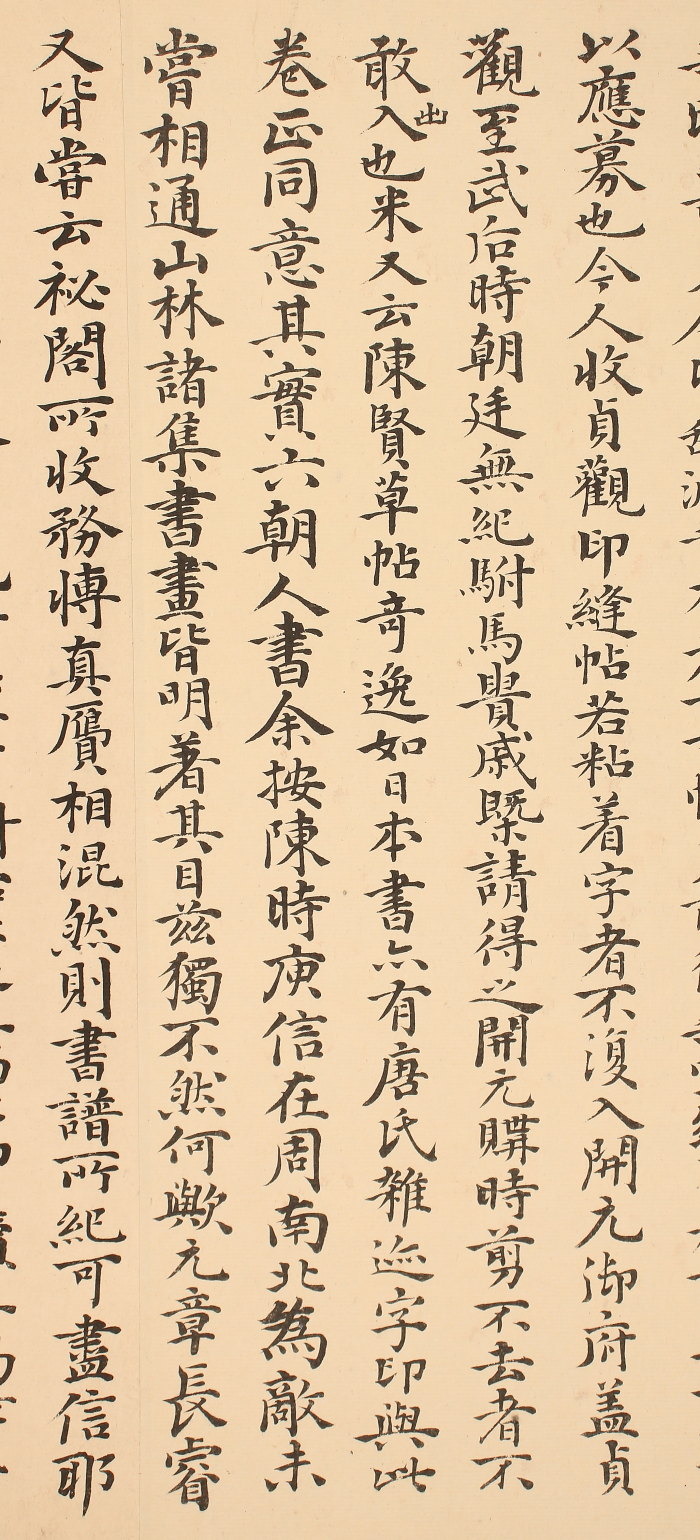 以應募也今人收貞觀印縫帖若粘着字者不復入開元御府盖貞
觀至武后時朝廷無紀駙馬貴戚槩請得之開元購時剪不去者不
敢入出也米又云陳賢草帖奇逸如日本書亦有唐氏雜迹字印與此
卷正同意其實六朝人書余按陳時庾信在周南北為敵未
嘗相通山林諸集書畫皆明著其目茲獨不然何歟元章長睿
又皆嘗云祕閣所收務慱真贋相混然則書譜所紀可盡信耶